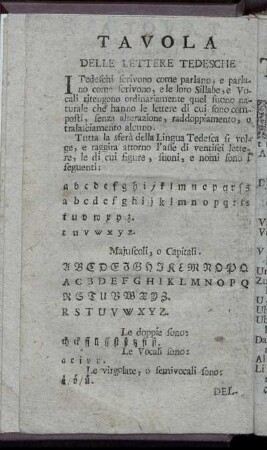 TAVOLA
DELLE LETTERE TEDESCHE
I Tedeschi scrivono come parlano, e parla-
no come scrivono, e le loro Sillabe, e Vo-
cali ritengono ordinariamente quel suono na-
turale che hanno le lettere di cui sono com-
posti, senza alterazione, raddoppiamento, o
tralasciamento alcuno.
Tutta la sfera della Lingua Tedesca si vol-
ge, e raggira attorno l'asse di ventisei lette-
re, le di cui figure, suoni, e nomi sono i
seguenti:
a b c d e f g h i j k l m n o p q r s ſ
a b c d e f g h i j k l m n o p q r ſ s
t u v w x y z.
t u v w x y z.
Majuscoli, o Capitali.
A B C D E F G H I K L M N O P Q
A C B D E F G H I K L M N O P Q
R S T U V W X Y Z.
R S T U V W X Y Z.
Le doppie sono:
Le Vocali sono:
Le virgolate, o semivocali sono:
DEL-